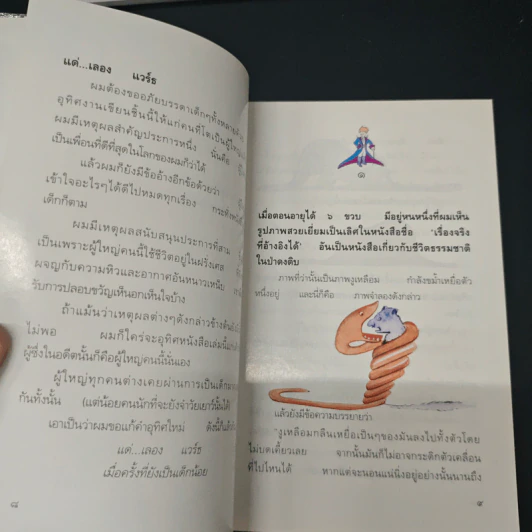 แด่...เลออง แวร์ธ
ผมต้องขออภัยบรรดาเด็กๆทั้งหลายที่
อุทิศงานเขียนชิ้นนี้ให้แก่คนที่โตเป็นผู้ใหญ่
ผมมีเหตุผลสำคัญประการหนึ่ง นั่นคือ
เป็นเพื่อนที่ดีที่สุดในโลกของผมก็ว่าได้
แล้วผมก็ยังมีข้ออ้างอีกข้อด้วยว่า
เข้าใจอะไรๆได้ดีไปหมดทุกเรื่อง กระทั่งหนังสือ
เด็กก็ตาม
ผมมีเหตุผลสนับสนุนประการที่สาม
เป็นเพราะผู้ใหญ่คนนี้ใช้ชีวิตอยู่ในฝรั่งเศส
ผจญกับความหิวและอากาศอันหนาวเหน็บ
รับการปลอบขวัญเห็นอกเห็นใจบ้าง
ถ้าแม้นว่าเหตุผลต่างๆดังกล่าวข้างต้นยัง
ไม่พอ ผมก็ใคร่จะอุทิศหนังสือเล่มนี้
ผู้ซึ่งในอดีตนั้นก็คือผู้ใหญ่คนนี้นั่นเอง
ผู้ใหญ่ทุกคนต่างเคยผ่านการเป็นเด็กมา
กันทั้งนั้น (แต่น้อยคนนักที่จะยังจำวัยเยาว์นั้นได้)
เอาเป็นว่าผมขอแก้คำอุทิศใหม่ ดังนี้
แด่...เลออง แวร์ธ
เมื่อครั้งที่ยังเป็นเด็กน้อย
๘
๑
เมื่อตอนอายุได้ ๖ ขวบ มีอยู่หนหนึ่งที่ผมเห็น
รูปภาพสวยเยี่ยมเป็นเลิศในหนังสือชื่อ 'เรื่องจริง
ที่อ้างอิงได้' อันเป็นหนังสือเกี่ยวกับชีวิตธรรมชาติ
ในป่าดงดิบ
ภาพที่ว่านั้นเป็นภาพงูเหลือม กำลังขม้ำเหยื่อตัว
หนึ่งอยู่ และนี่ก็คือ ภาพจำลองดังกล่าว
แล้วยังมีข้อความบรรยายว่า
'งูเหลือมกลืนเหยื่อเป็นๆของมันลงไปทั้งตัวโดย
ไม่บดเคี้ยวเลย จากนั้นมันก็ไม่อาจกระดิกตัวเคลื่อน
ที่ไปไหนได้ หากแต่จะนอนแน่นิ่งอยู่อย่างนั้นนานถึง
๙